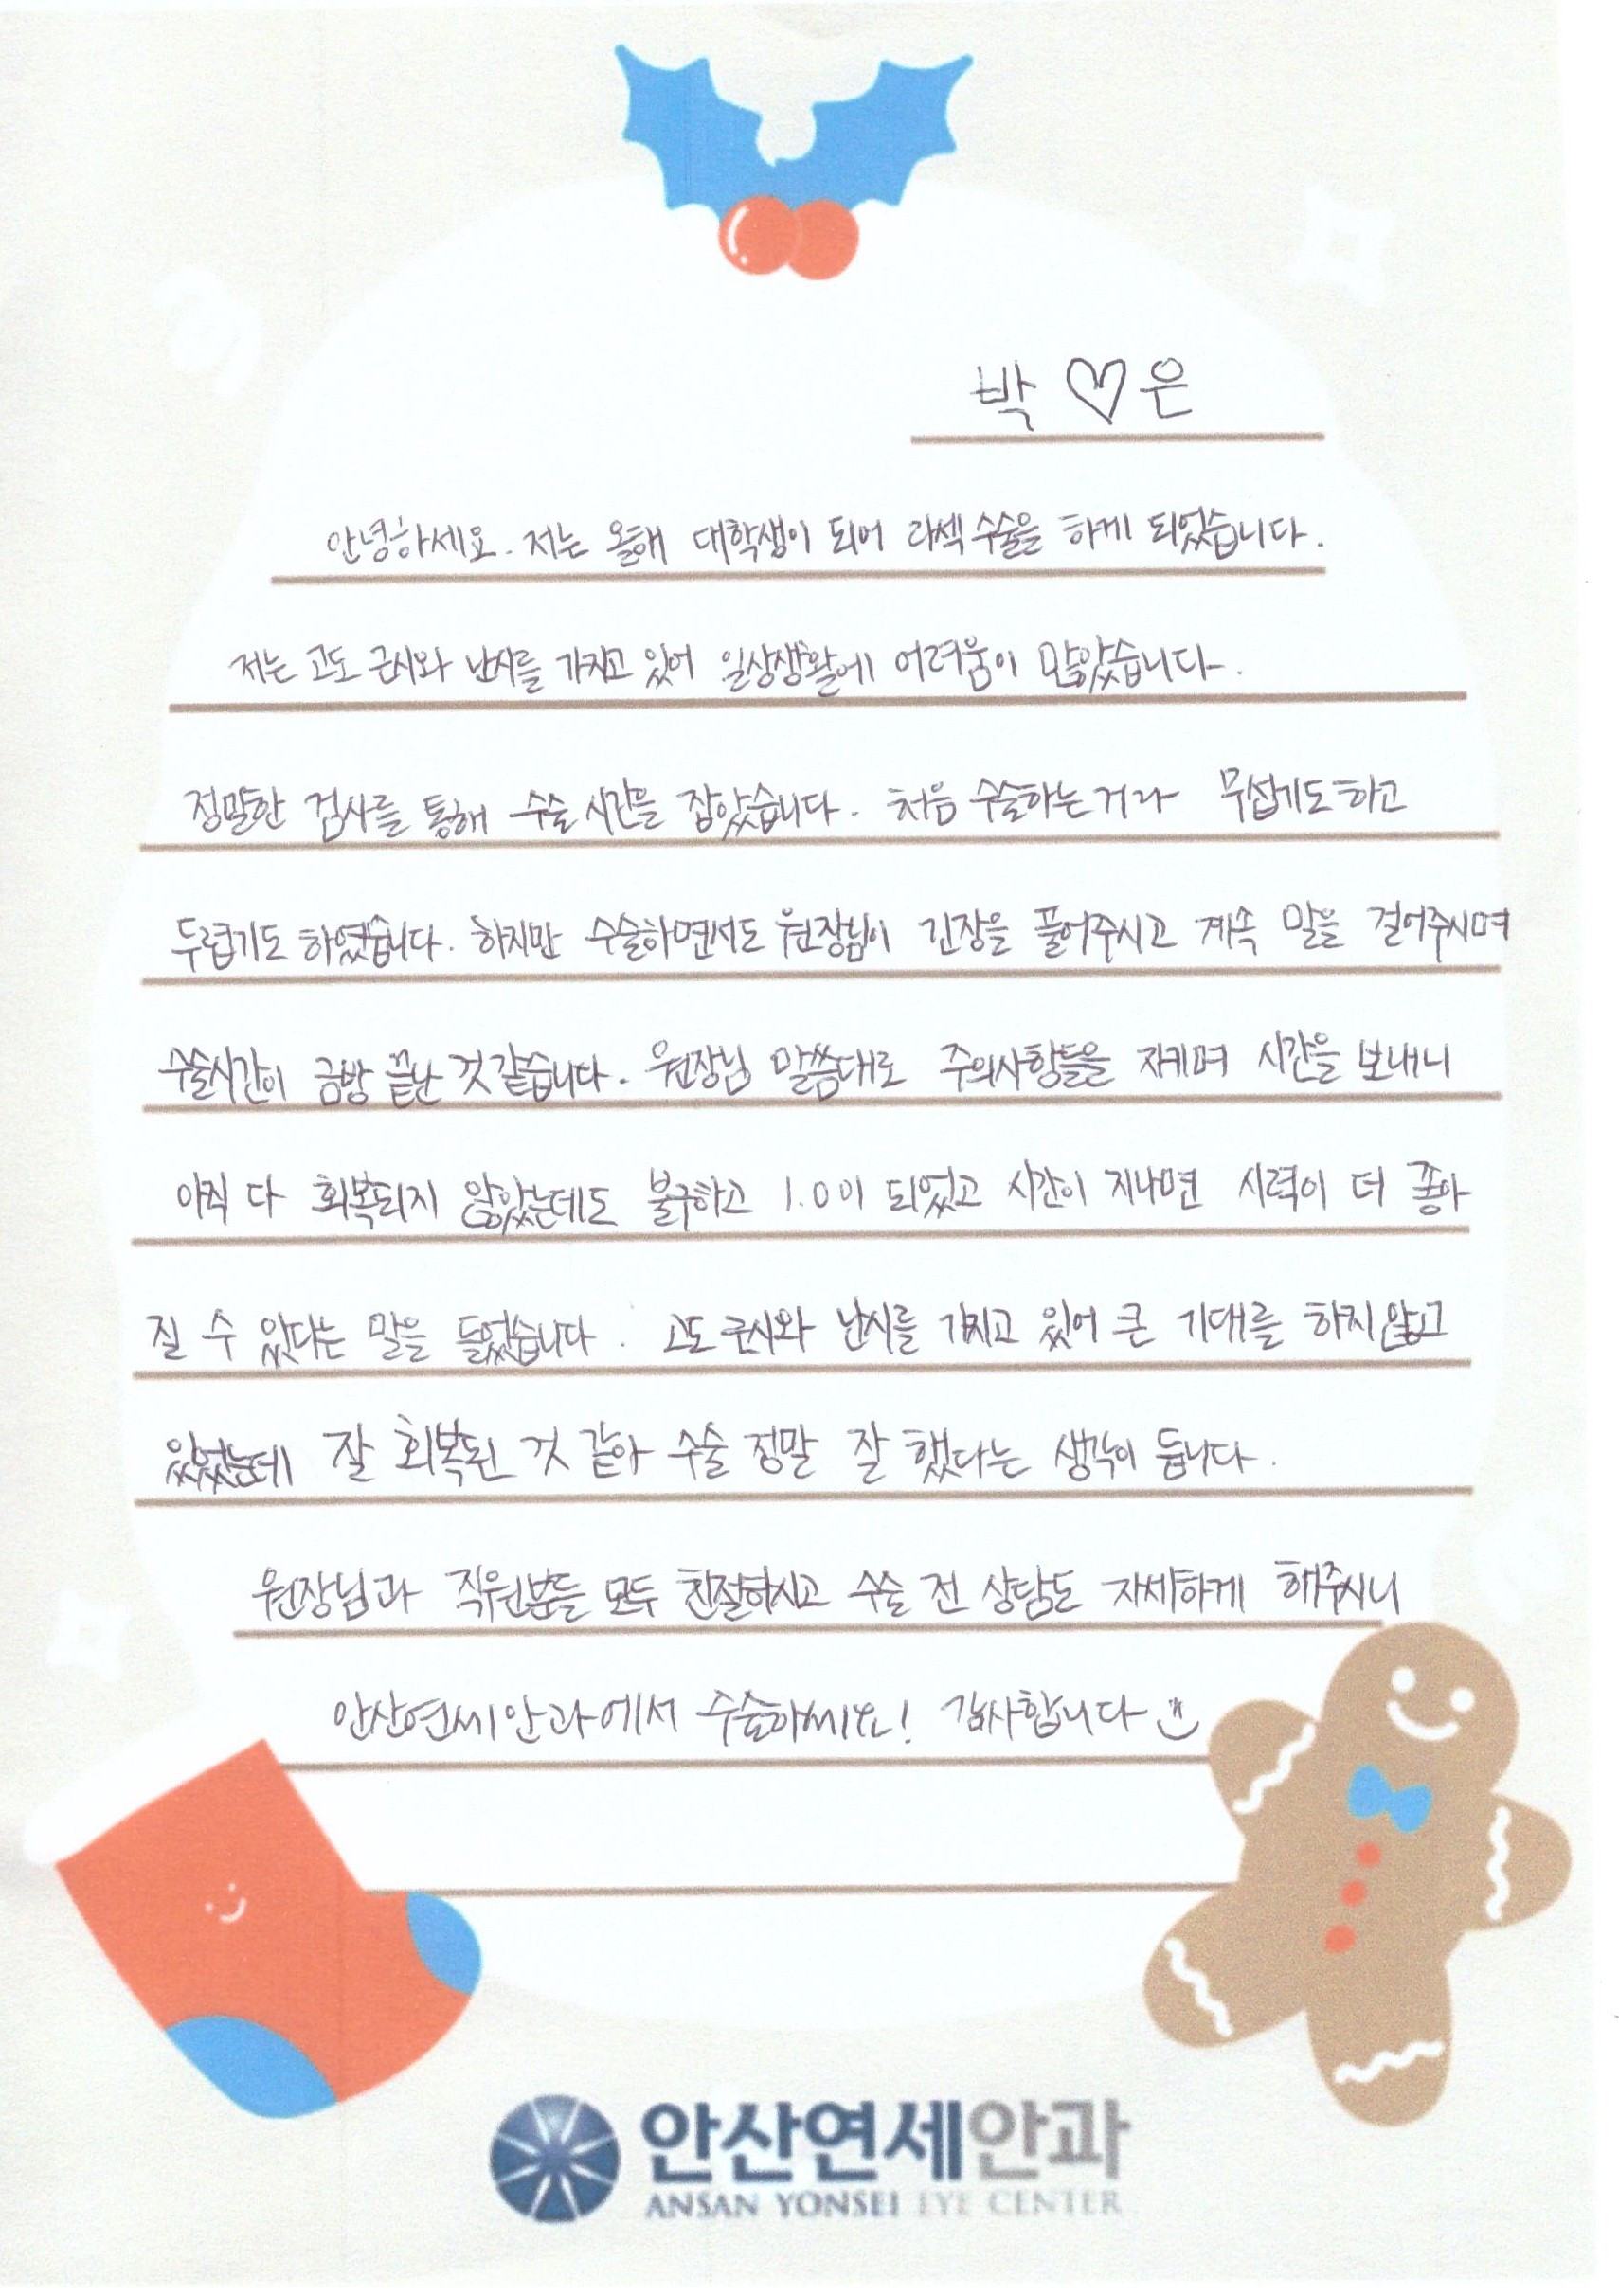 박 ♡ 은
안녕하세요. 저는 올해 대학생이 되어 라섹 수술을 하게 되었습니다.
저는 고도 근시와 난시를 가지고 있어 일상생활에 어려움이 많았습니다.
정밀한 검사를 통해 수술 시간을 잡았습니다. 처음 수술하는거라 무섭기도하고
두렵기도 하였습니다. 하지만 수술하면서도 원장님이 긴장을 풀어주시고 계속 말을 걸어주시며
수술시간이 금방 끝난 것 같습니다. 원장님 말씀대로 주의사항들을 지키며 시간을 보내니
아직 다 회복되지 않았는데도 불구하고 1.0이 되었고 시간이 지나면 시력이 더 좋아
질 수 있다는 말을 들었습니다. 고도 근시와 난시를 가지고 있어 큰 기대를 하지않고
있었는데 잘 회복된 것 같아 수술 정말 잘 했다는 생각이 듭니다.
원장님과 직원분들 모두 친절하시고 수술 전 상담도 자세하게 해주시니
안산연세안과에서 수술하세요! 감사합니다
안산연세안과
ANSAN YONSEI EYE CENTER